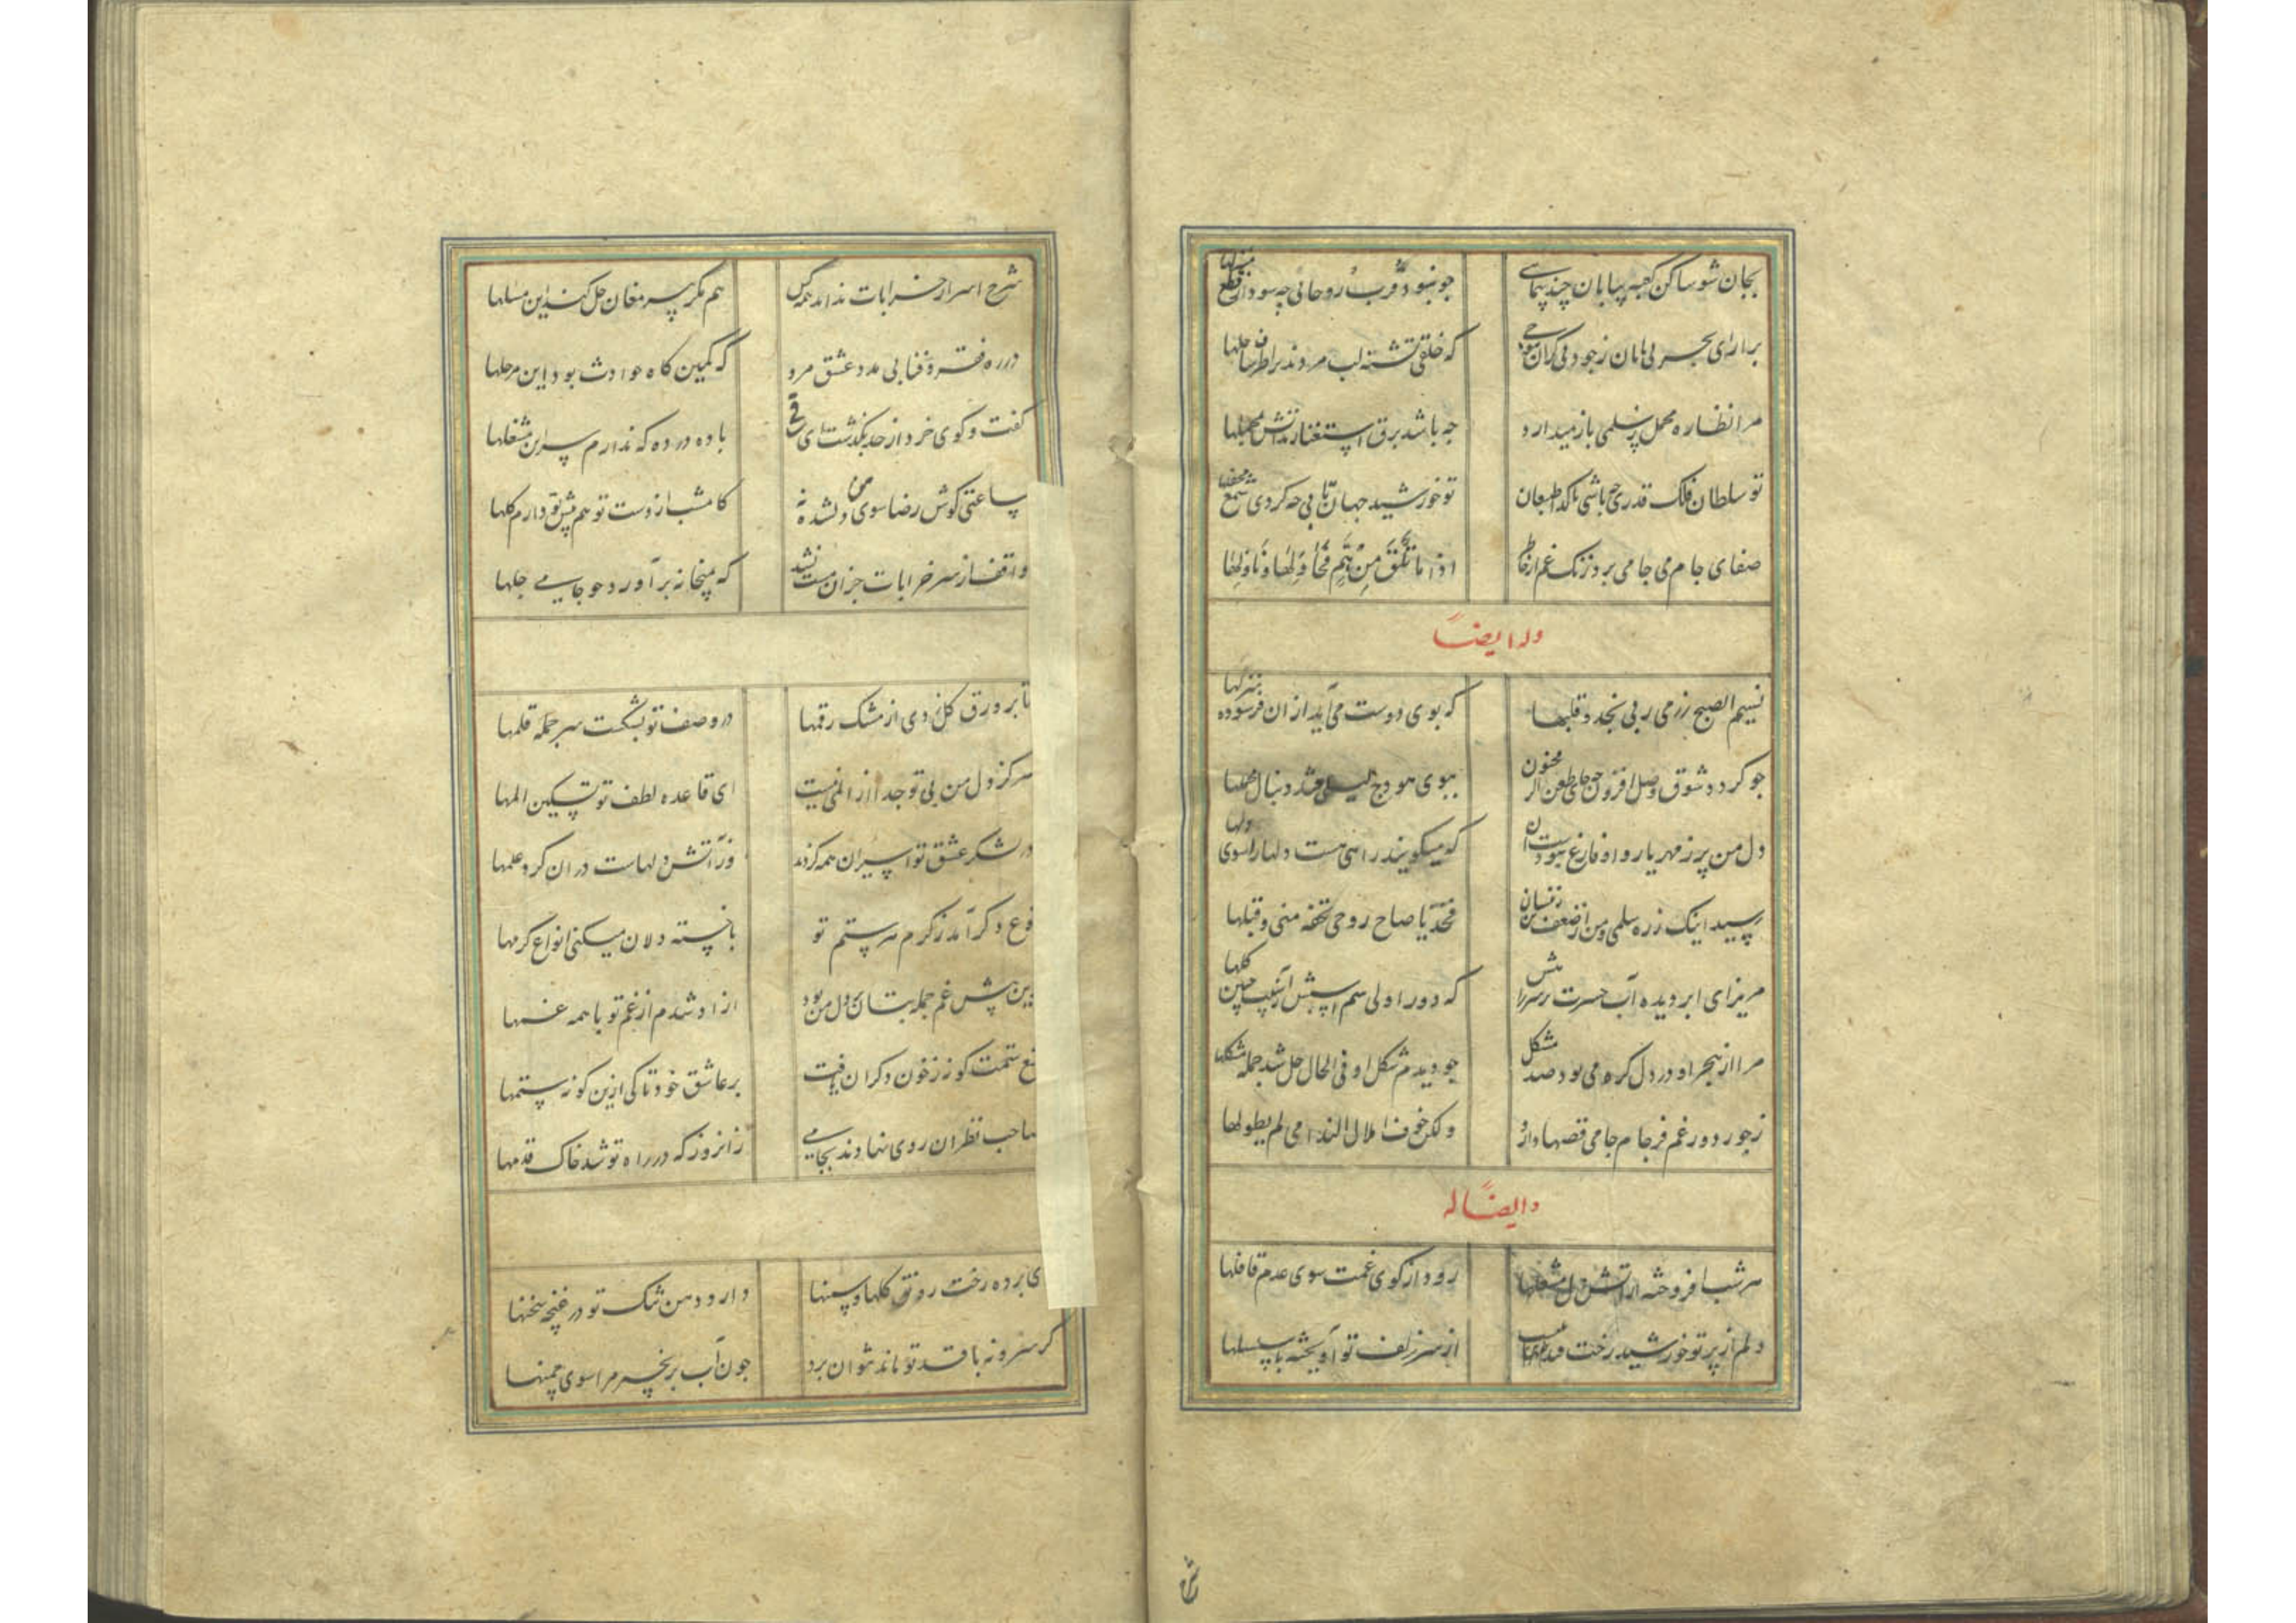 بجان شو ساکن کعبه بیابان چند پیمایی
چو نبود قرب روحانی چه سود از قطع منزلها
برار ای بحر بی پایان ز جود بی کران موجی
که خلقی تشنه لب مردند بر اطراف ساحلها
مرا نظاره محمل ز سلمی باز میدارد
چه باشد برق استغنا زند آتش بمحملها
تو سلطان فلک قدری چه باشی با گدا طبعان
تو خورشید جهان تابی چه کردی شمع محفلها
صفای جام می جامی برد زنگ غم از خاطر
اذا ما تلق من هم فحاولها وناولها
وله ایضاً
نسیم الصبح زر منی ربی نجد و قبلها
که بوی دوست می آید از ان فرسوده منزلها
چو کردد شوق وصل افزون چه جای طعن اگر مجنون
ببوی هودج لیلی فتد دنبال محملها
دل من پر ز مهر یار و او فارغ نبودست آن
که میکویند راهی هست دلها را سوی دلها
رسید اینک ز ره سلمی و من از ضعف تن زنسان
فخذ یا صاح روحی تحفه منی و قبلها
مریز ای ابر دیده آب حسرت بر سر راهش
که دور اولی سم اسپش از آسیب چنین کلها
مرا از هجر او در دل کره می بود صد مشکل
چو دیدم شکل او فی الحال حل شد جمله مشکلها
ز جور دور غم فرجام جامی قصها دارد
ولکن خوف املال الندامی لم یطولها
وایضاً له
هر شب افروخته از آتش دل مشعلها
رود از کوی غمت سوی عدم قافلها
دلم از پرتو خورشید رخت
از سر زلف تو آویخته با سلسلها
ش
شرح اسرار خرابات نداند همه کس
هم مکر پیر مغان حل کند این مسلها
در ره فقر و فنا بی مدد عشق مرو
که کمین کاه حوادث بود این مرحلها
کفت وکوی خرد از حد بکذشت ای ساقی
باده در ده که ندارم سر این مشغلها
ساعتی کوش رضا سوی من دلشده نه
کامشب از دست تو هم پیش تو دارم کلها
واقف از سر خرابات جز ان مست نشد
که بمیخانه برآورد چو جامی چلها
تا بر ورق کل زدی از مشک رقمها
در وصف تو بشکست سر جمله قلمها
هرکز دل من بی تو جدا از المی نیست
ای قاعده لطف تو تسکین المها
در لشکر عشق تو اسیران همه کردند
وز آتش دلهاست دران کرد علمها
نوع دکر آمد ز کرم هر ستم تو
با خسته دلان میکنی انواع کرمها
زین پیش غم جمله بتان بر دل من بود
ازاد شدم از غم تو با همه غمها
تیغ ستمت کونه ز خون دکران یافت
بر عاشق خود تا کی ازین کونه ستمها
صاحب نظران روی نهادند بجامی
زانروز که در راه تو شد خاک قدمها
ای برده رخت رونق کلها و سمنها
دارد دهن تنک تو در غنچه سخنها
کر سرو نه با قد تو ماند نتوان برد
چون آب بزنجیر مرا سوی چمنها